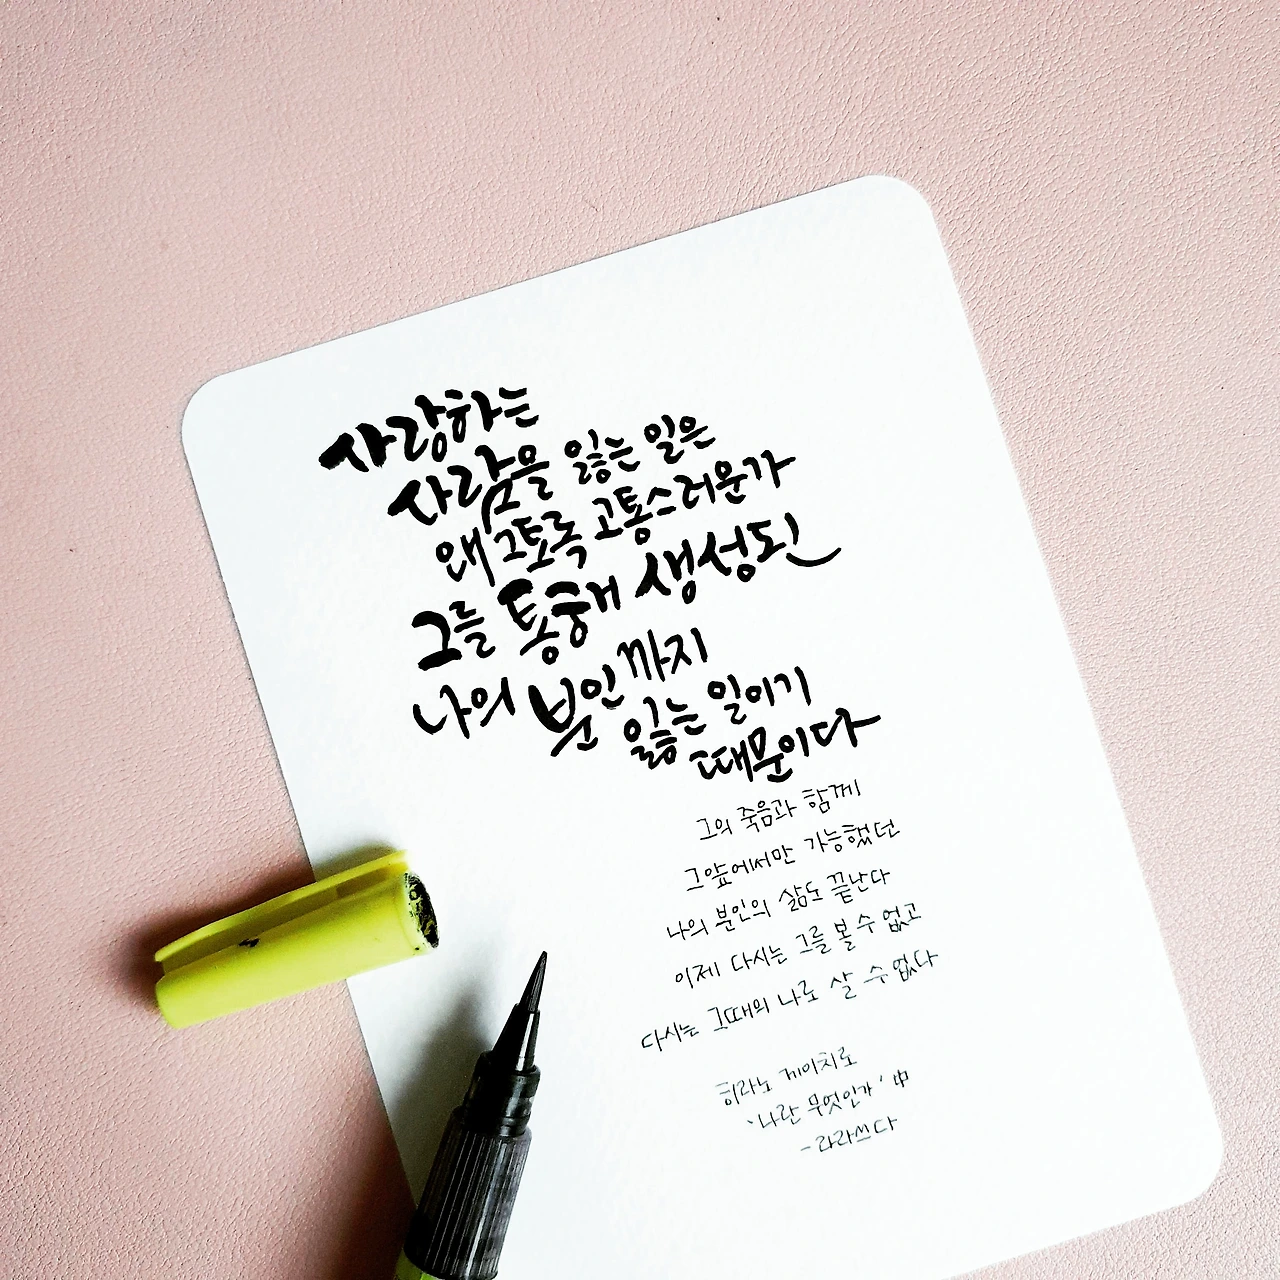 사랑하는
사람을 잃는 일은
왜 그토록 고통스러운가
그를 통해 생성된
나의 분인까지
잃는 일이기
때문이다
그의 죽음과 함께
그앞에서만 가능했던
나의 분인의 삶도 끝난다
이제 다시는 그를 볼 수 없고
다시는 그때의 나로 살 수 없다
히라노 게이치로
'나란 무엇인가' 中
-라라쓰다